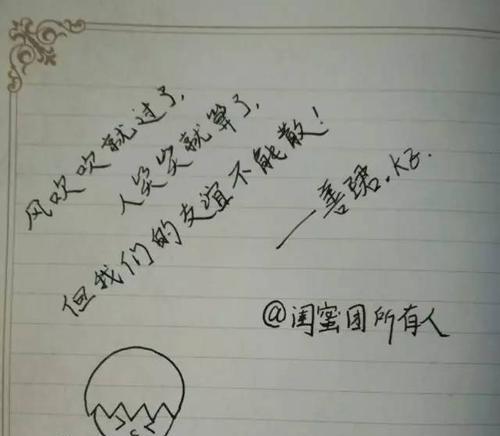 风吹吹就过了,
人笑笑就算了,
但我们的友谊不能散!
—善珺.kz.
@闺蜜团所有人